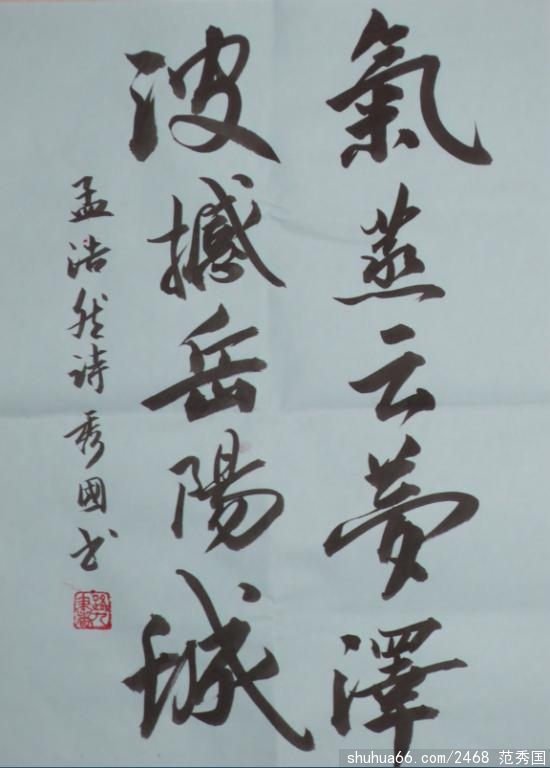 氣蒸云夢澤
波撼岳陽城
孟浩然诗 秀國书
shuhua66.com/2468 范秀国